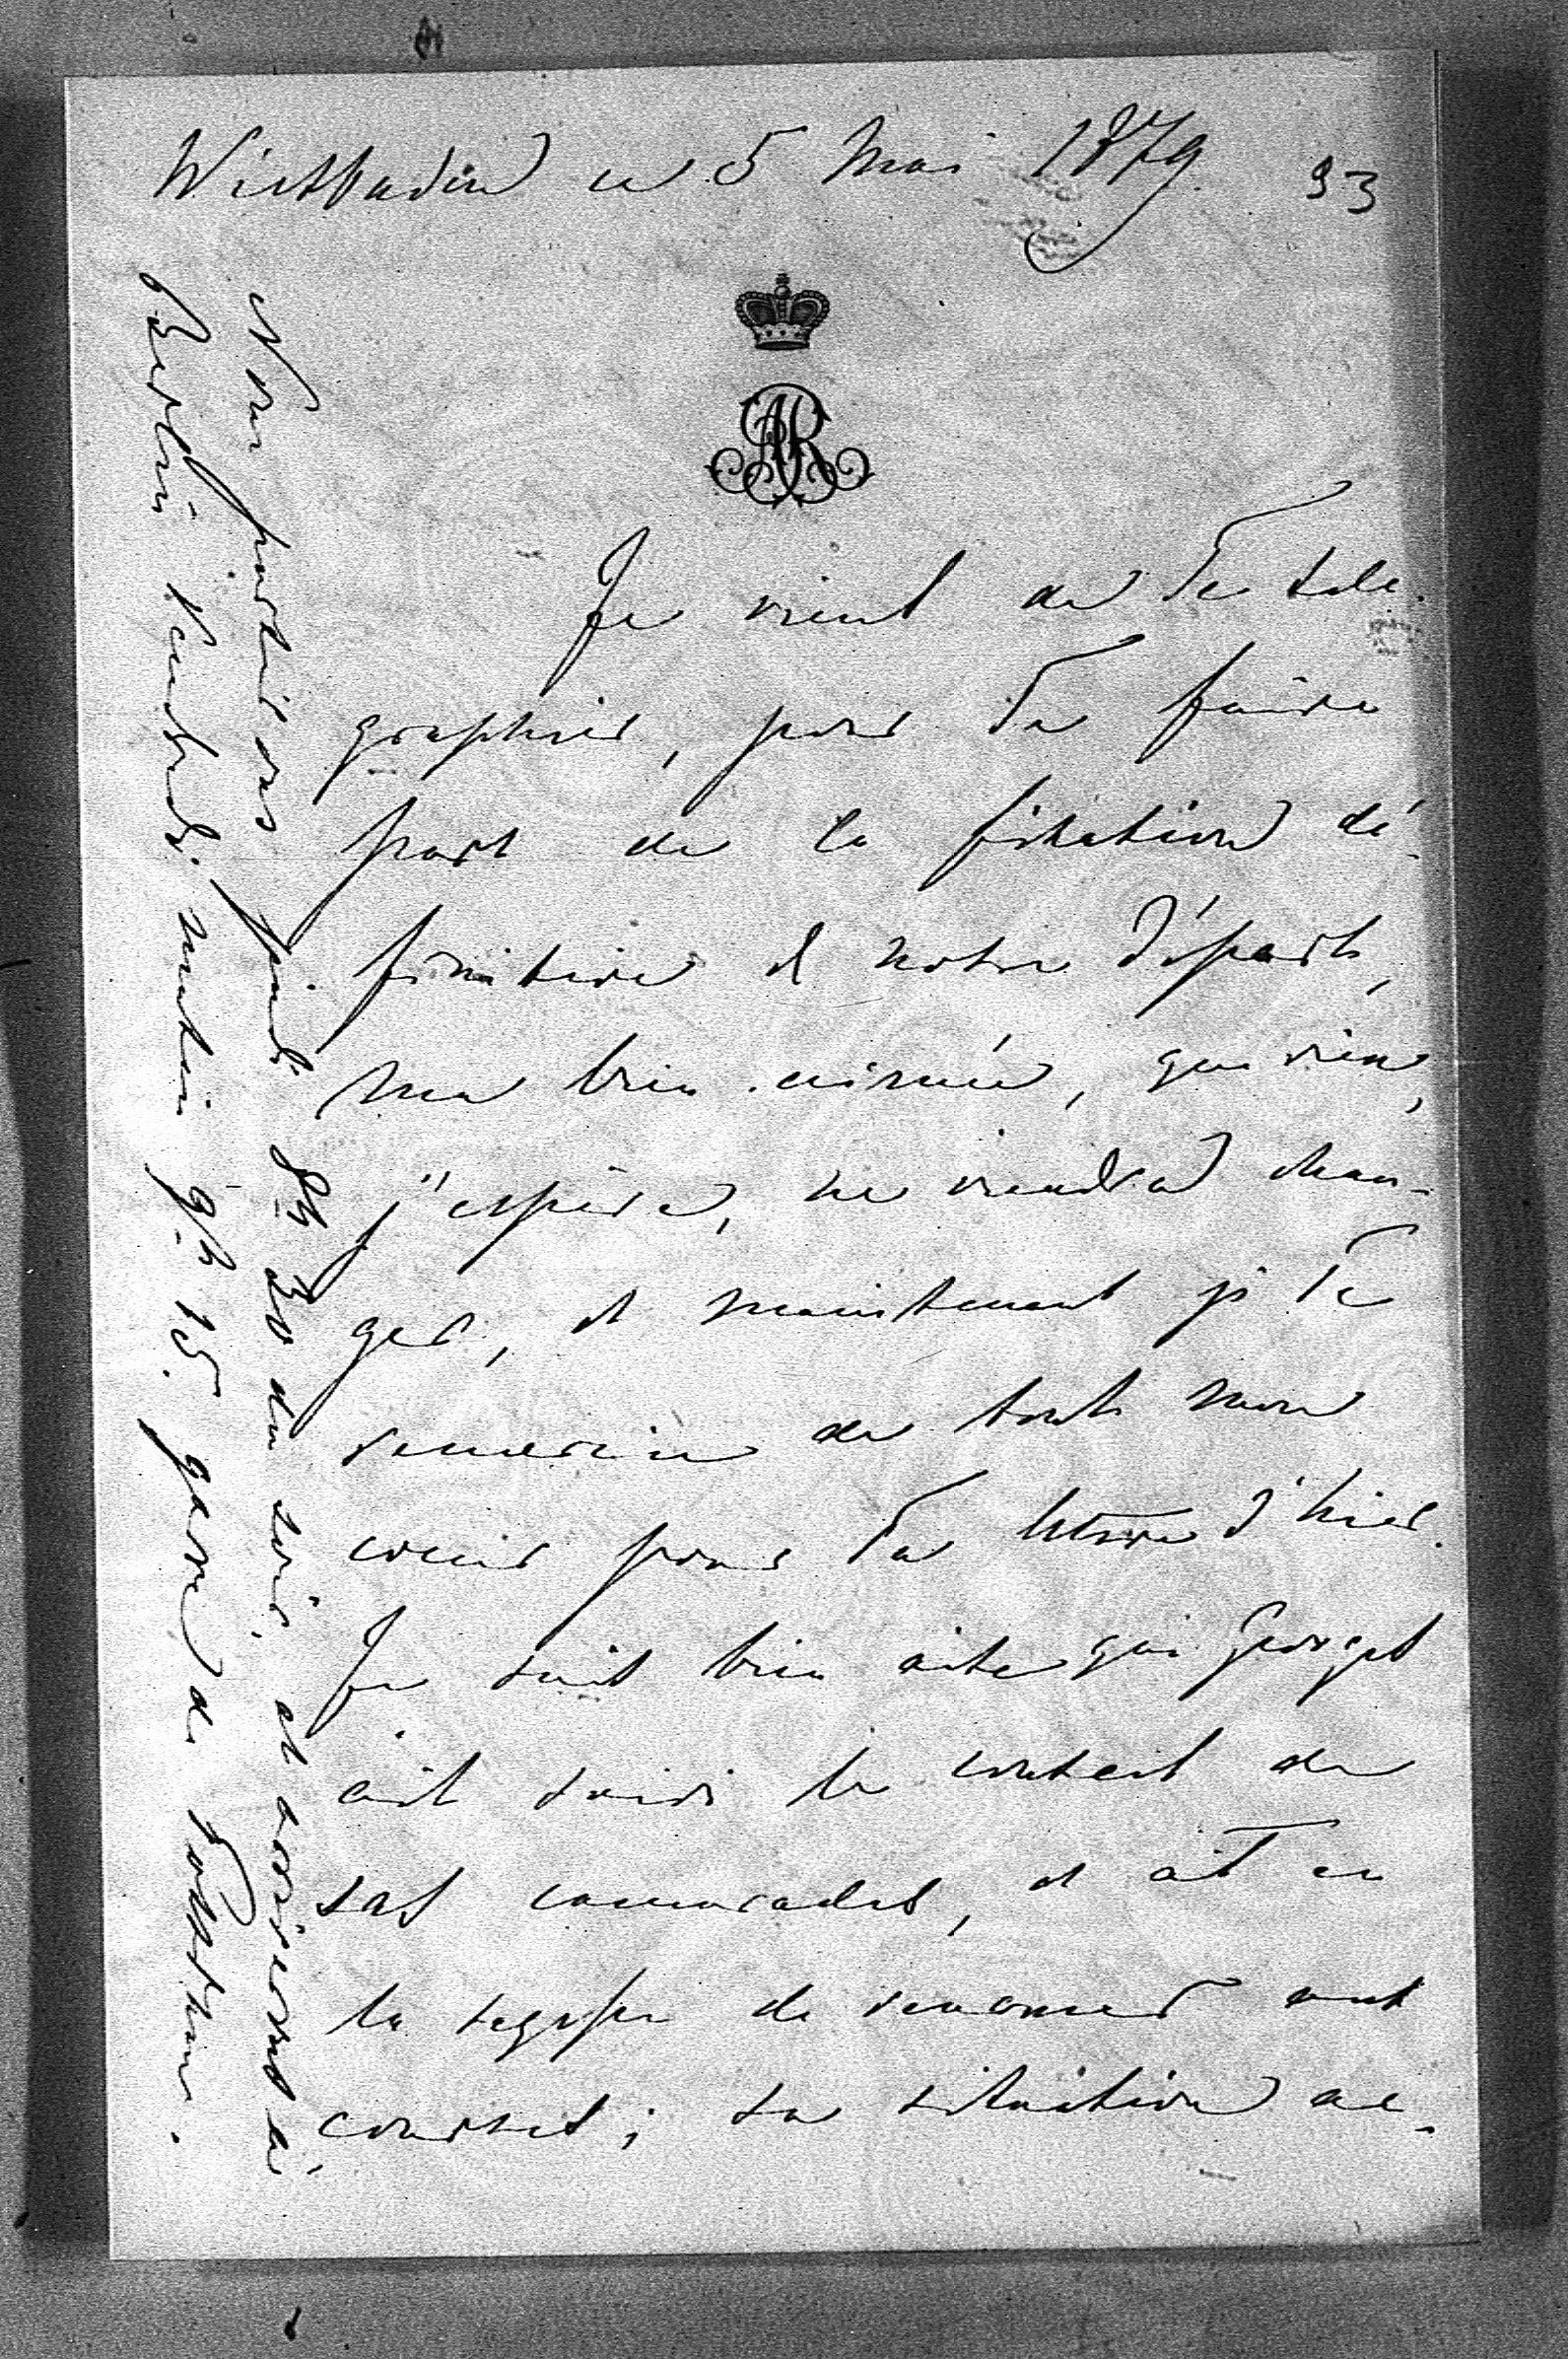 Wiesbaden ce 5 Mai 1879.
93
Je viens de Te télé-
graphier, pour Te faire
part de la fixation dé-
finitive de notre départ,
ma bien aimée, que rien,
j'espère, ne viendra chan-
ger, et maintenant je Te
remercie de tout mon
coeur pour Ta lettre d'hier.
Je suis bien aise que Georges
ait suivi le conseil de
ses camarades, et ait eu
la sagesse de renoncer aux
courses; sa situation ac-
Nous partirons jeudi 8h 30 du soir, et arriverons à
Berlin vendredi matin 9h 15. gare de Potsdam.